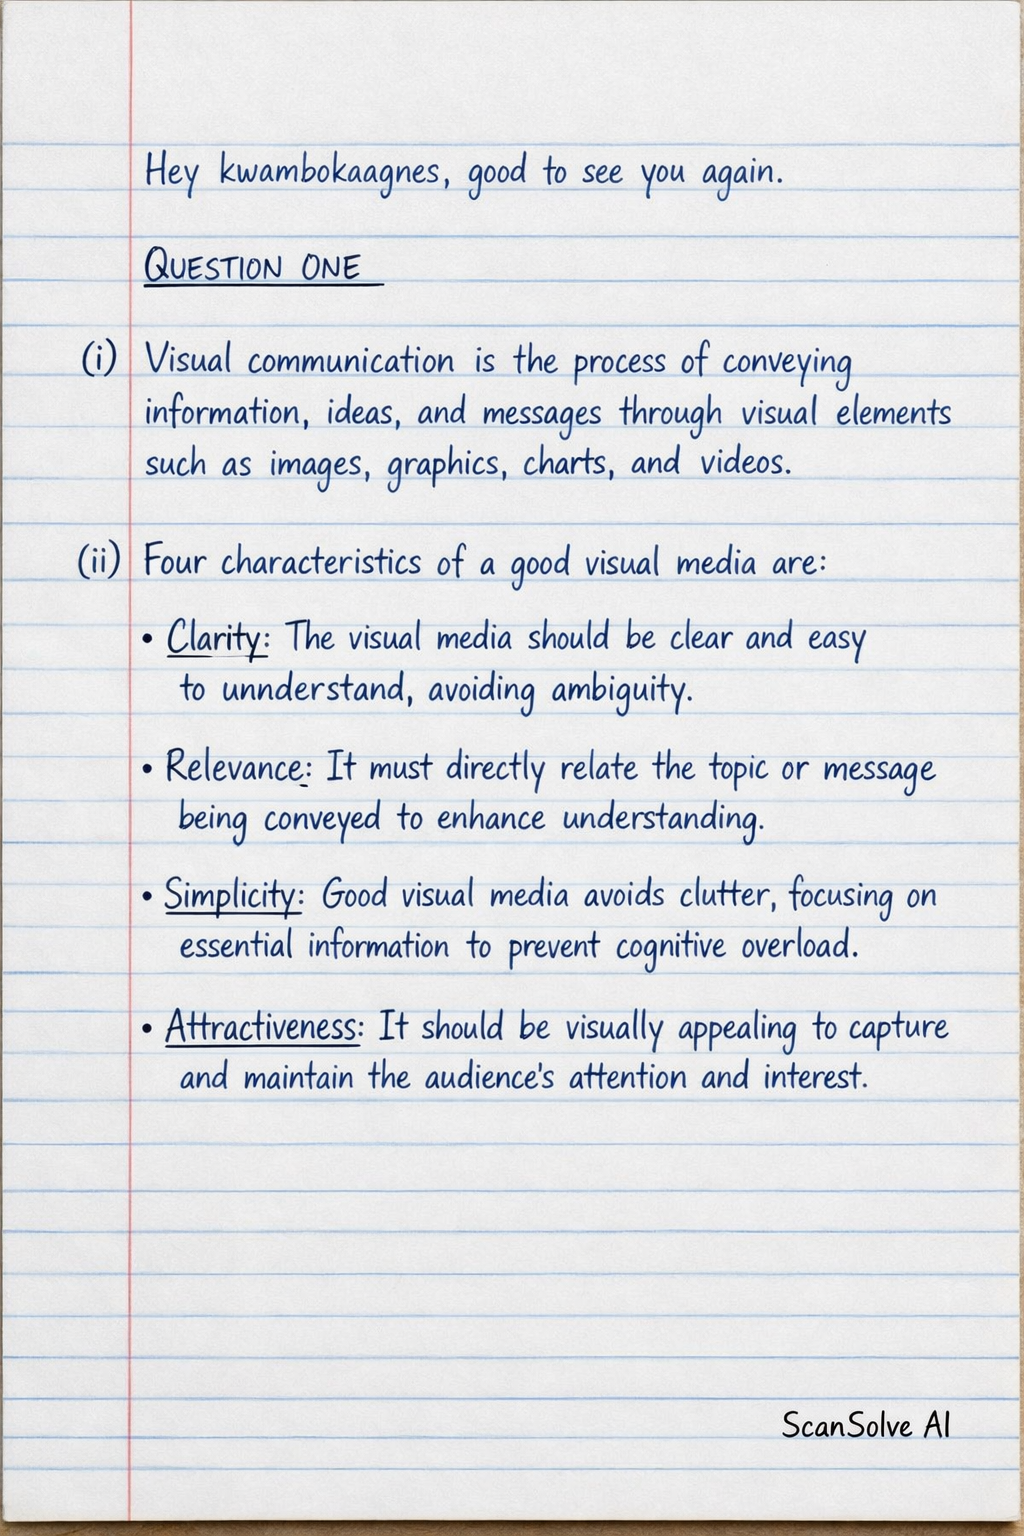 Hey kwambokaagnes, good to see you again.
QUESTION ONE
(i) Visual communication is the process of conveying
information, ideas, and messages through visual elements
such as images, graphics, charts, and videos.
(ii) Four characteristics of a good visual media are:
• Clarity: The visual media should be clear and easy
to unnderstand, avoiding ambiguity.
• Relevance: It must directly relate the topic or message
being conveyed to enhance understanding.
• Simplicity: Good visual media avoids clutter, focusing on
essential information to prevent cognitive overload.
• Attractiveness: It should be visually appealing to capture
and maintain the audience's attention and interest.
ScanSolve AI